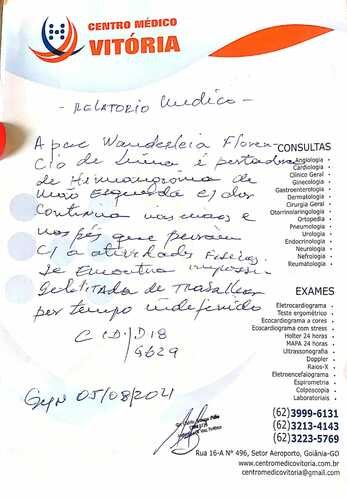 CENTRO MÉDICO
VITÓRIA
- RELATORIO Medico -
A pac Wanderleia Floren-
cio de Lima é portadora
de Hemangioma de
mão Esquerda c/ dor
continua nas maos e
nos pés que
c/ a atividades Fisicas
Se Encontra
de Trabalhar
por tempo indefinido
CID: D18
G629
Gyn 05/08/2021
CONSULTAS
Angiologia •
Cardiologia •
Clínico Geral •
Ginecologia •
Gastroenterologia •
Dermatologia •
Cirurgia Geral •
Otorrinnaringologia •
Ortopedia •
Pneumologia •
Urologia •
Endocrinologia •
Neurologia •
Nefrologia •
Reumatologia •
EXAMES
Eletrocardiograma •
Teste ergométrico •
Ecocardiograma a cores •
Ecocardiograma com stress •
Holter 24 horas •
MAPA 24 horas •
Ultrassonografia •
Doppler •
Raios-X •
Eletroencefalograma •
Espirometria •
Colposcopia •
Laboratoriais •
(62)3999-6131
(62)3213-4143
(62)3223-5769
Rua 16-A N° 496, Setor Aeroporto, Goiânia-GO
www.centromedicovitoria.com.br
centromedicovitoria@gmail.com